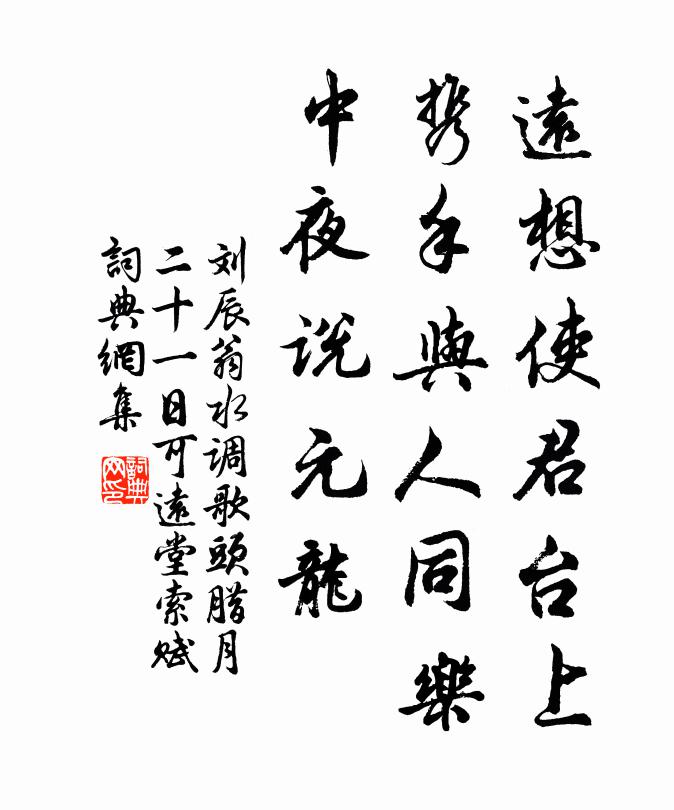 遠想使君台上
携手與人同樂
中夜说元龍
刘辰翁水调歌頭腊月
二十一日可遠堂索赋
詞典網集
詞典
网印